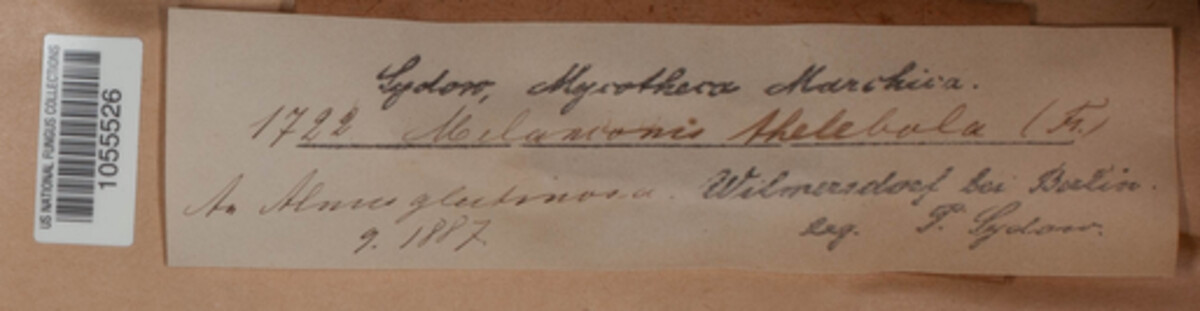 US NATIONAL FUNGUS COLLECTIONS
10555526
Sydow, Mycotheca Marchica.
1722 Melanconis thelebola (Fr.)
An Alnus glutinosa. Wilmersdorf bei Berlin.
9. 1887 leg. P. Sydow.